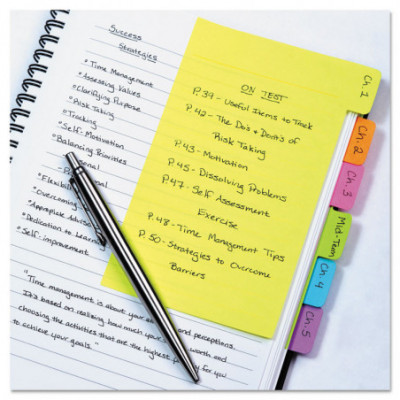 Success
Strategies
* Time Management
* Assessing Values
* Clarifying Purpose
* Risk Taking
* Tracking
* Self-Motivation
* Balancing Priorities
* Flexibil
* Overcoming
* Appropriate Advis
* Dedication to Learn
* Self-improvement
"Time management is about your
and perceptions.
It's based on realizing how much your
worth and
choosing the activities that are the highest
for you
to achieve your goals."
ON TEST
P.39 - Useful Items to Track
P.42 - The Do's + Dont's of
Risk Taking
P.43 - Motivation
P.45 - Dissolving Problems
P.47 - Self Assessment
Exercise
P.48 - Time Management Tips
P.50 - Strategies to Overcome
Barriers
Ch. 1
Ch. 2
Ch. 3
Mid-Term
Ch. 4
Ch. 5